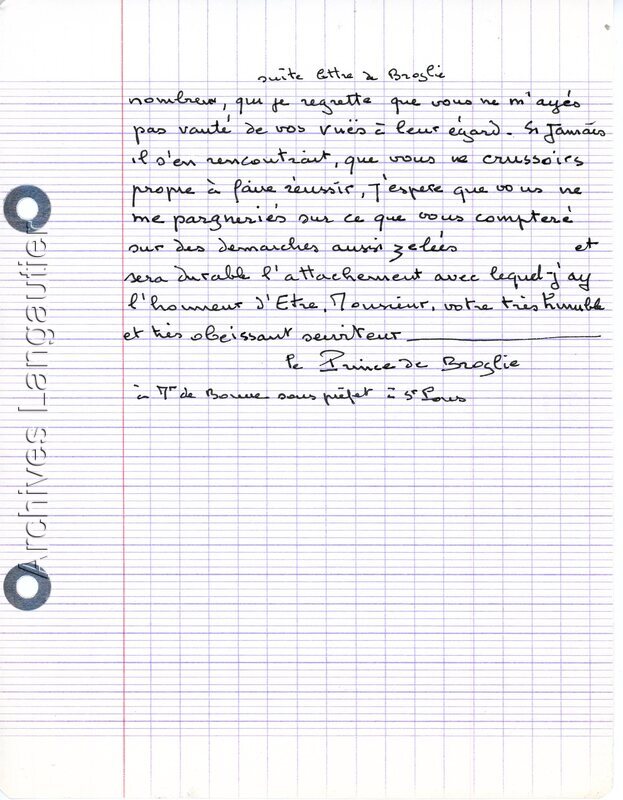 suite lettre de Broglie
nombreux, qui je regrette que vous ne m'ayés
pas vanté de vos vuës à leur égard. Si Jamais
il s'en rencontrait, que vous ne crussoirs
propre à faire réussir, J'espere que vous ne
me pargneriés sur ce que vous compteré
sur des demarches aussi zelées et
sera durable l'attachement avec lequel j'ay
l'honneur d'Etre, Monsieur, votre très humble
et très obeissant serviteur
le Prince de Broglie
à Mr de Bonne sous préfet à St Pons
Archives Langautier